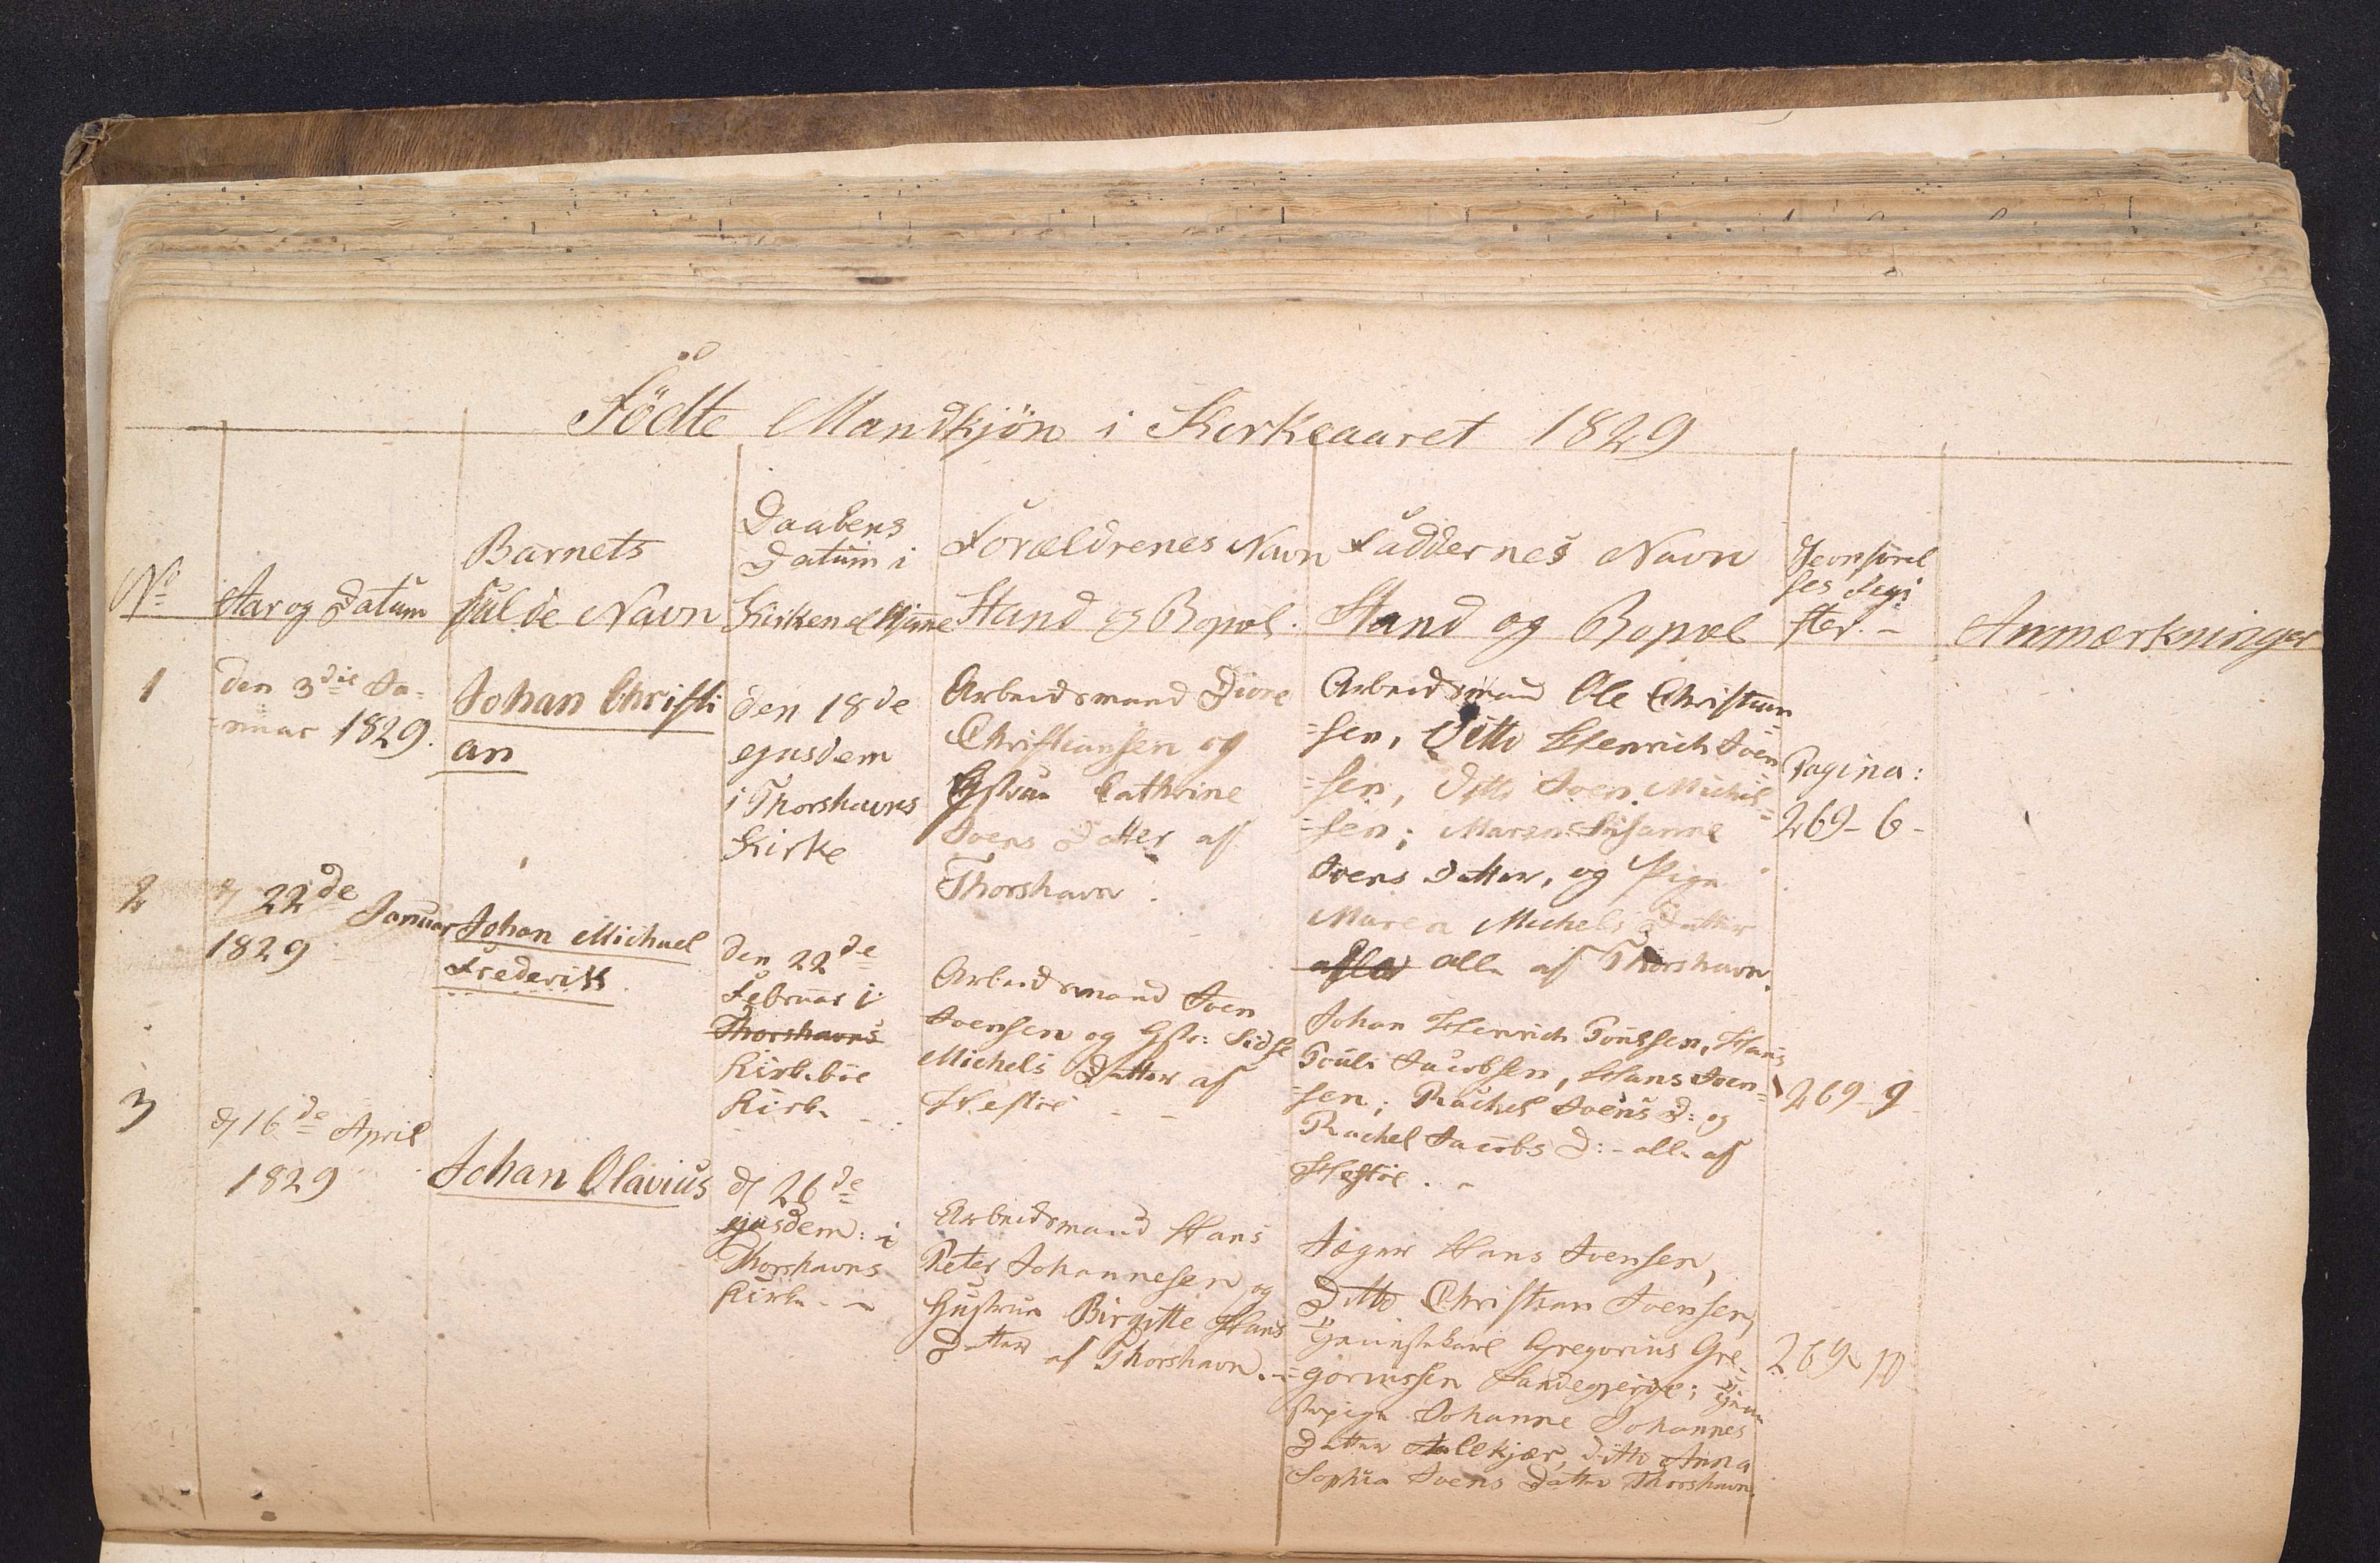 Födte Mandkjön i Kirkeaaret 1829
No
Aar og Datum
Barnets
fulde Navn
Daabens
Datum i
Kirken el Hjemme
Forældrenes Navn
Stand og Bopæl.
Faddernes Navn
Stand og Bopæl
Jevnförel
ses Regi
ster. -
Anmærkninger
1
den 3die Ja=
=nuar 1829.
Johan Christi
an
den 18de
ejusdem
i Thorshavns
Kirke
Arbeidsmand
Christiansen og
Hustrue Cathrine
Joens Datter af
Thorshavn.
Arbeidsmand Ole Christian=
=sen, Ditto Henrich Joen
=sen, Ditto Joen Michel=
=sen; Maren Susanne
Joens Datter, og Pige
Maren Michels Datter
alle af Thorshavn.
Pagina:
269-6-
2
d 22de Januar
1829
Johan Michael
Frederik
den 22de
Februar i
Thorshavns
Kirkeböe
Kirke
Arbeidsmand Joen
Joensen og Hstr: Sidse
Michels Datter af
Hestöe
Johan Henrich Poulsen, Hans
Pouli Jacobsen, Hans Joen=
=sen; Rachel Joens D: og
Rachel Jacobs D: - alle af
Hestöe.
269-9-
3
d 16de April
1829
Johan Olavius
d 26de
ejusdem: i
Thorshavns
Kirke -
Arbeidsmand Hans
Peter Johannesen og
Hustrue Birgitte Hans
Datter af Thorshavn.
Jæger Hans Joensen,
Ditto Christian Joensen,
Tjenestekarl Gregorius Gre=
=goriussen Sandegjerde; Tjene
stepige Johanne Johannes
Datter Aalekjær, ditto Anna
Sophia Joens Datter Thorshavn.
269-10